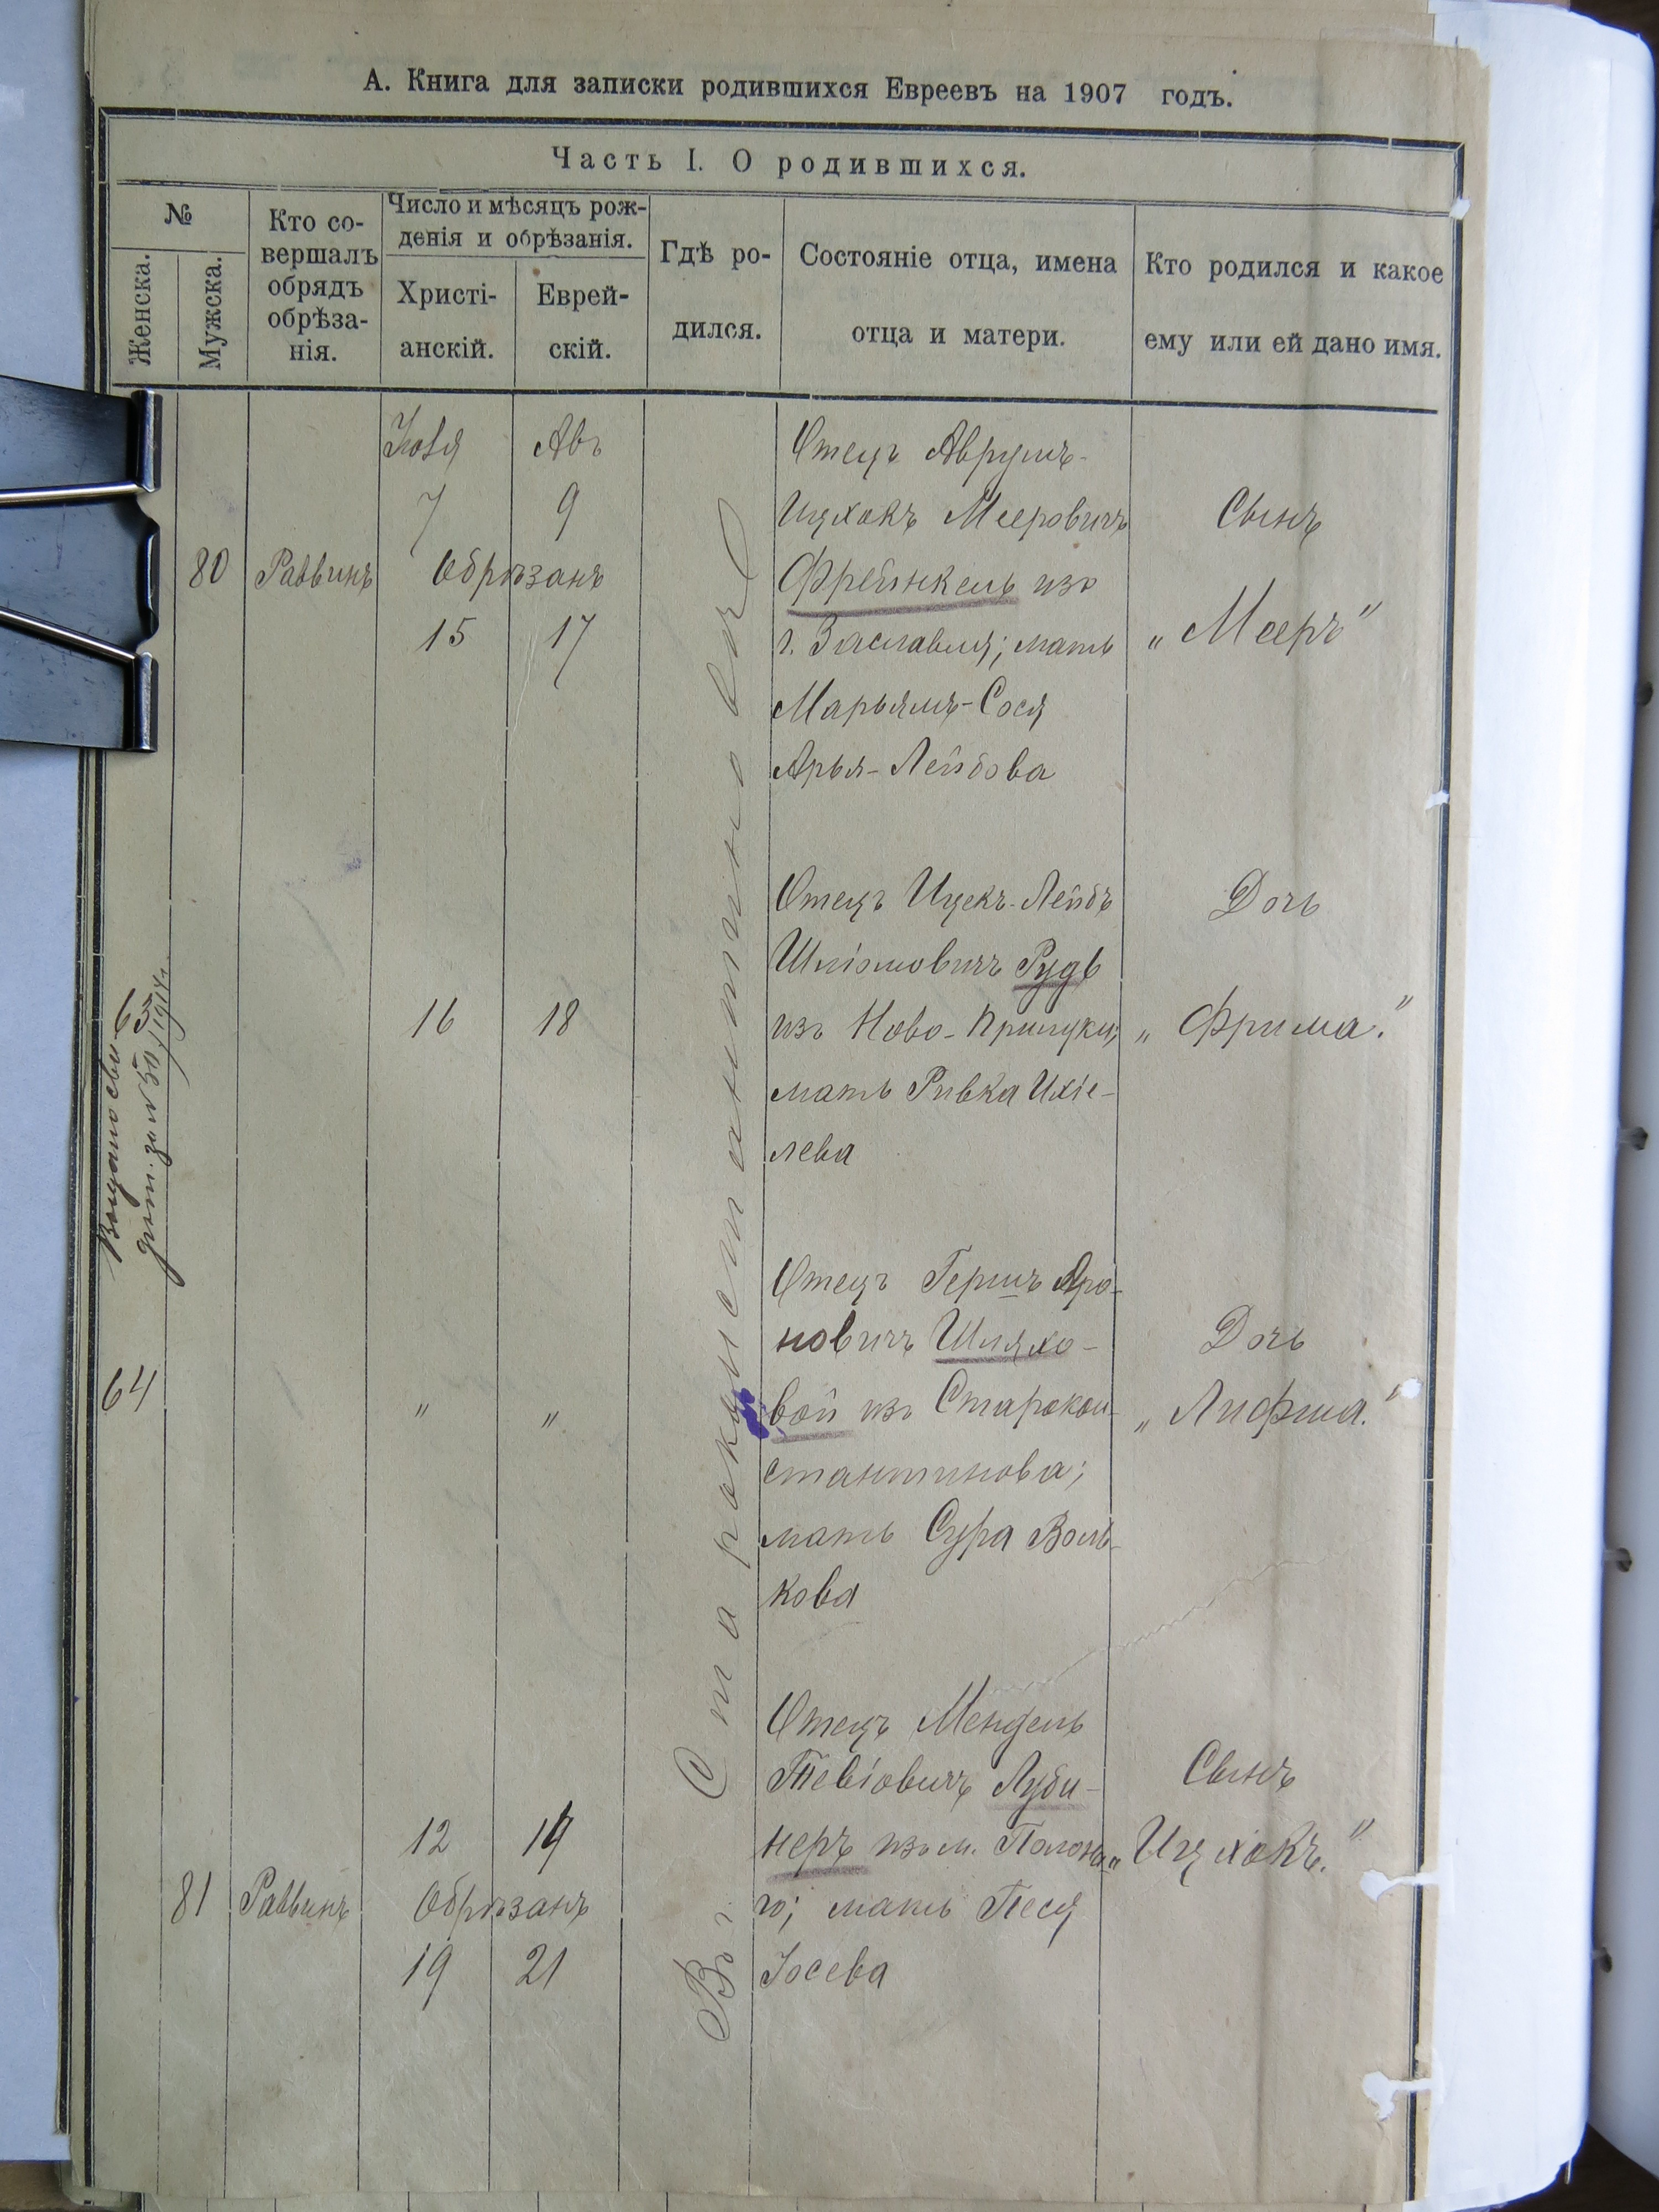 А. Книга для записки родившихся Евреевъ на 1907 годъ.
Часть I. О родившихся.
№
Женска.
Мужска.
Кто со-
вершалъ
обрядъ
обрѣза-
нія.
Число и мѣсяцъ рож-
денія и обрѣзанія.
Христі-
анскій.
Еврей-
скій.
Гдѣ ро-
дился.
Состояніе отца, имена
отца и матери.
Кто родился и какое
ему или ей дано имя.
80
Раввинъ
Іюля
7
Авъ
9
Обрѣзанъ
15
17
Въ г. Староконстантиновѣ
Отецъ Аврумъ-
Ицхокъ Мееровичъ
Френкель изъ
г. Заславля; мать
Марьямъ-Сося
Арья-Лейбова
Сынъ
„Мееръ"
63
16
18
Отецъ Ицекъ-Лейбъ
Шліомовичъ Рудь
изъ Ново-Прилуки;
мать Ривка Ихіе-
лева
Дочь
„Фрима."
64
"
"
Отецъ Гершъ Аро-
новичъ Шляхо-
вой изъ Старокон-
стантинова;
мать Сура Воль-
кова
Дочь
„Лифша."
81
Раввинъ
12
14
Обрѣзанъ
19
21
Отецъ Мендель
Тевіовичъ Луби-
неръ изъ м. Полонна-
го; мать Песя
Іосева
Сынъ
„Ицхокъ."